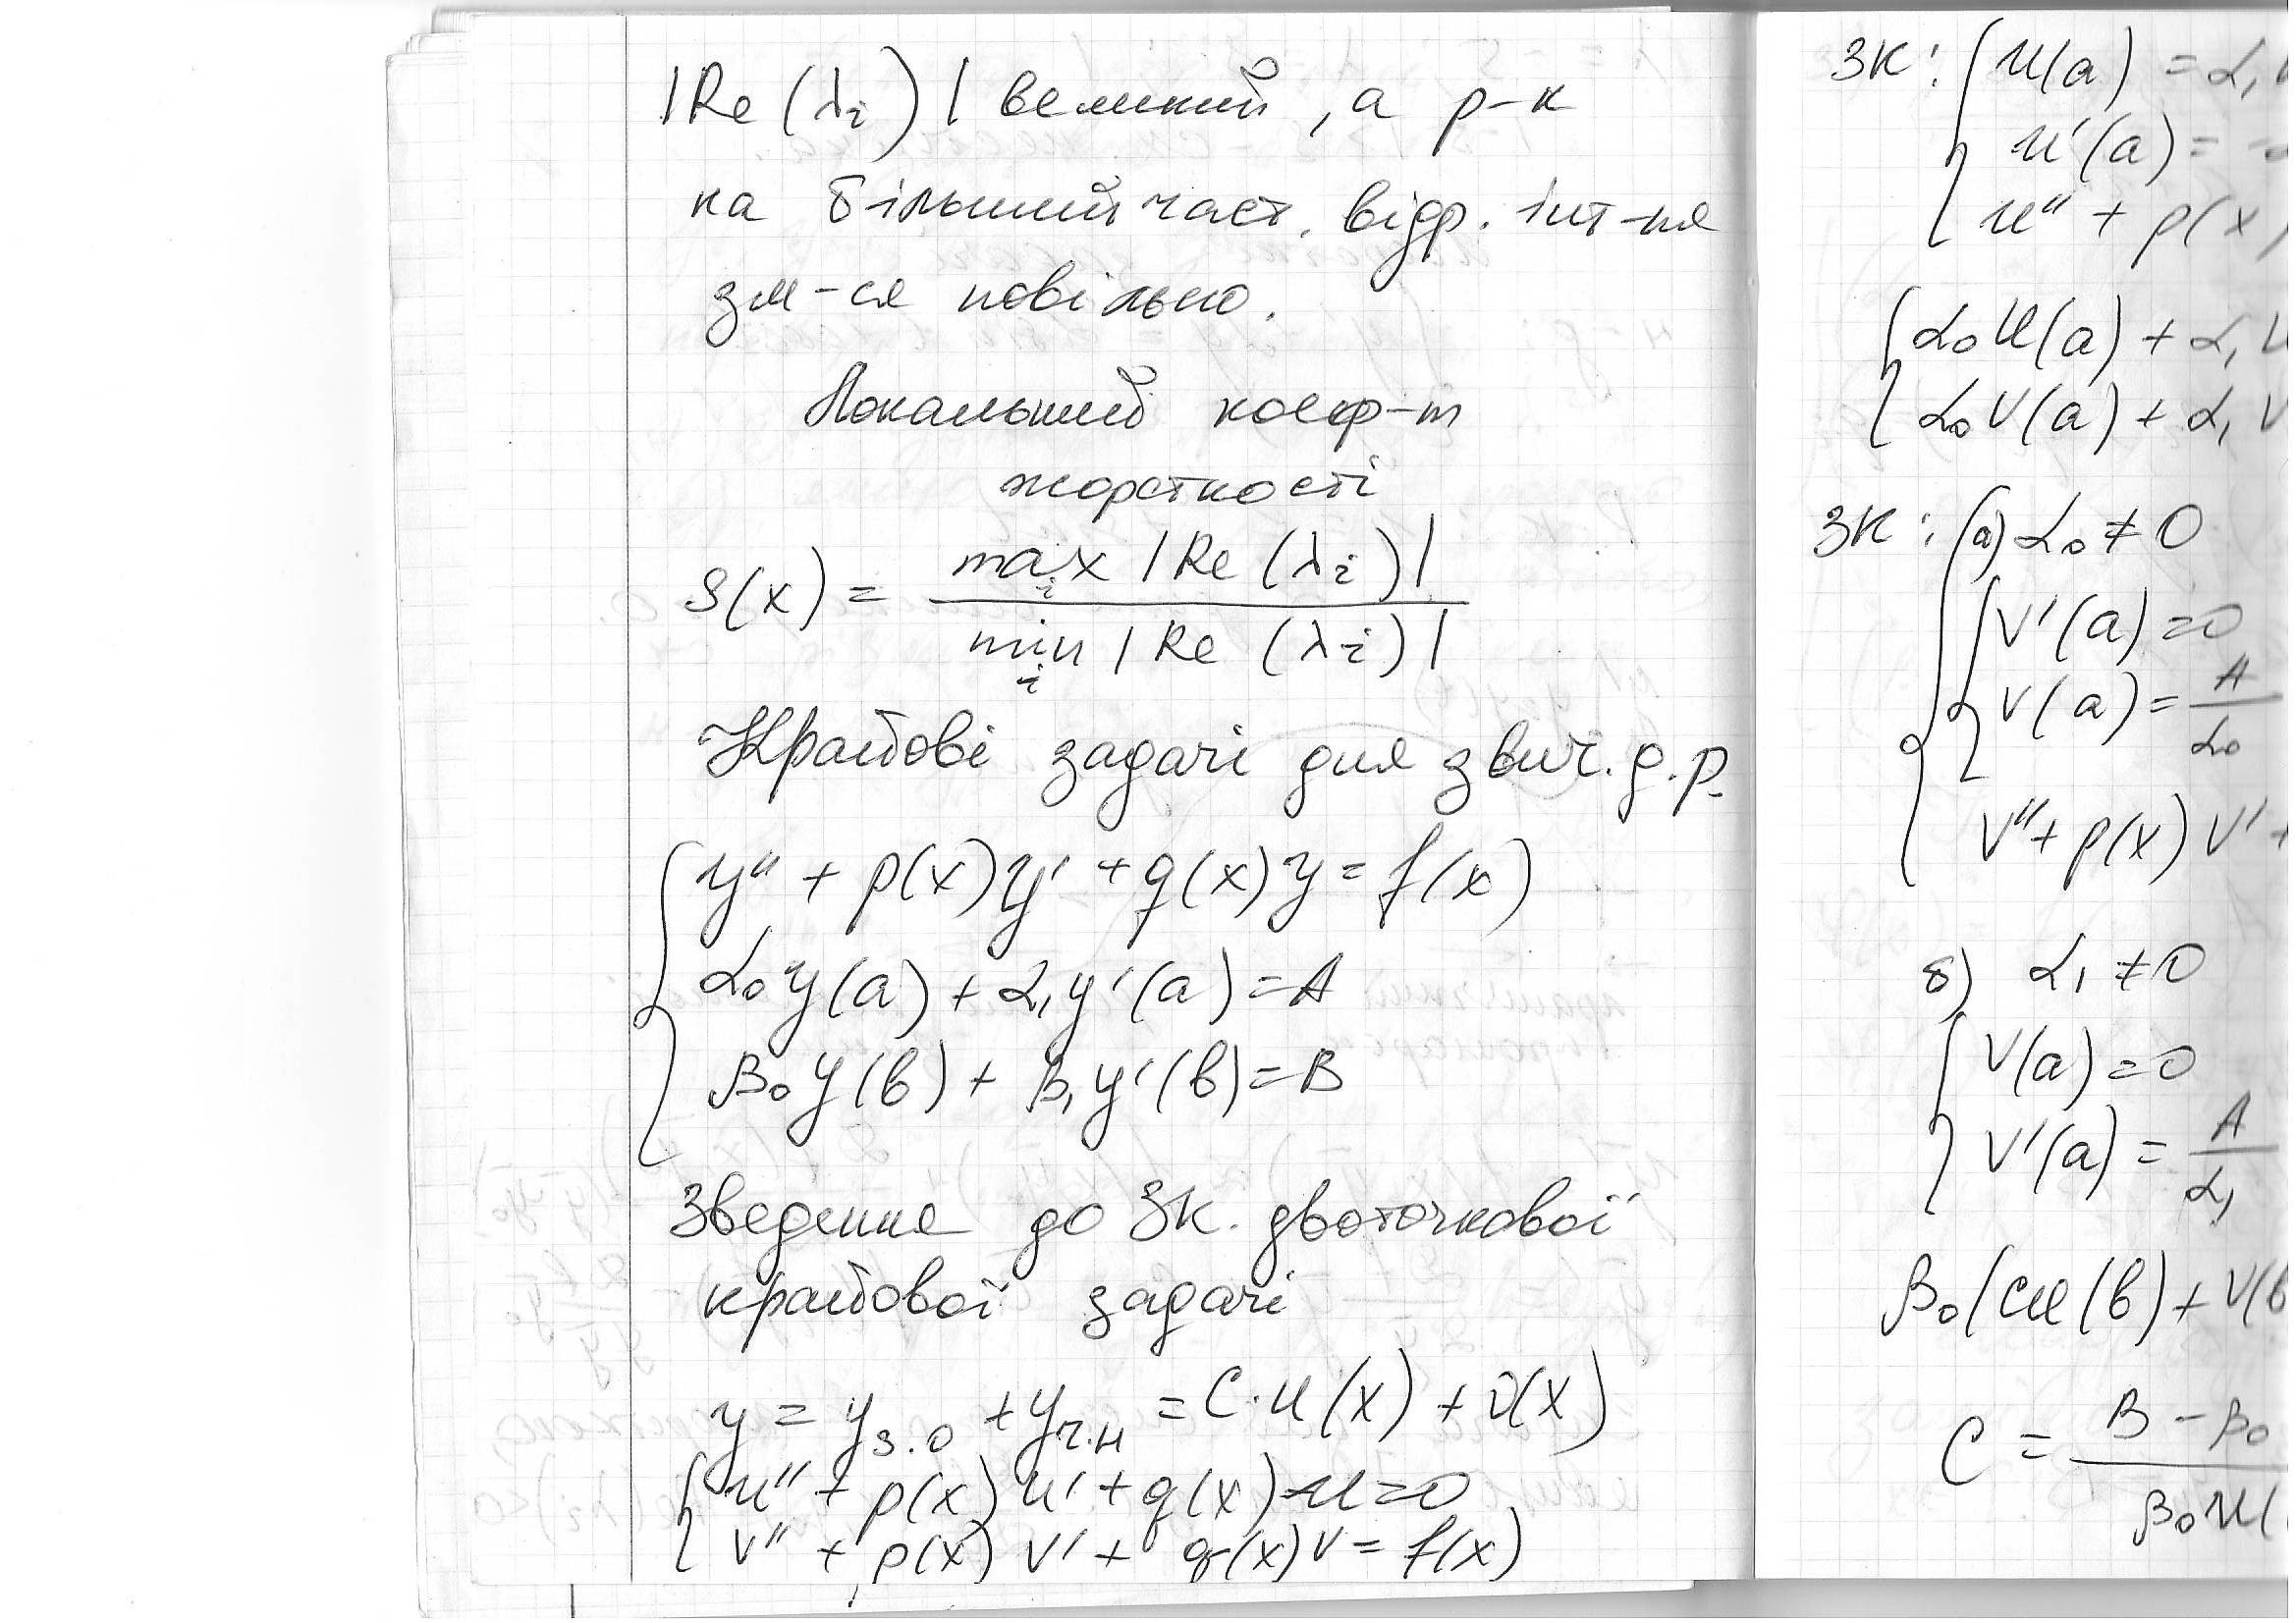 |Re(λᵢ)| великий, а р-к
на більший част. відр. інт-ня
зм-ся повільно.
Локальний коеф-т
жорсткості
S(x) = max_i |Re(λᵢ)| / min_i |Re(λᵢ)|
Крайові задачі для звич. д.р.
{ y'' + p(x)y' + q(x)y = f(x)
α₀y(a) + α₁y'(a) = A
β₀y(b) + β₁y'(b) = B
Зведення до ЗК. двоточкової
крайової задачі
y = y з.о + y ч.н = C·u(x) + v(x)
{ u'' + p(x)u' + q(x)u = 0
v'' + p(x)v' + q(x)v = f(x)
ЗК: { u(a) = α₁
u'(a) = -
u'' + p(x)
{ α₀u(a) + α₁
α₀v(a) + α₁v
ЗК: { а) α₀ ≠ 0
{ v'(a) = 0
v(a) = A / α₀
v'' + p(x)v' +
б) α₁ ≠ 0
{ v(a) = 0
v'(a) = A / α₁
β₀(cu(b) + v(b
C = B - β₀ / β₀u(